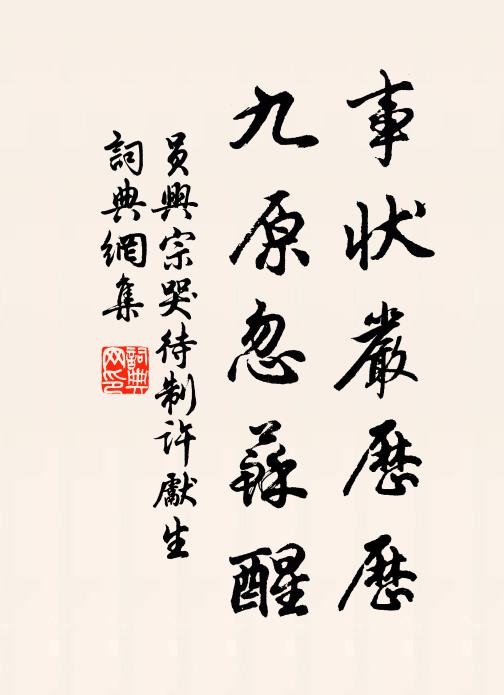 事状嚴歷歷
九原忽蘇醒
員興宗哭待制許獻生
詞典網集
詞典
网印